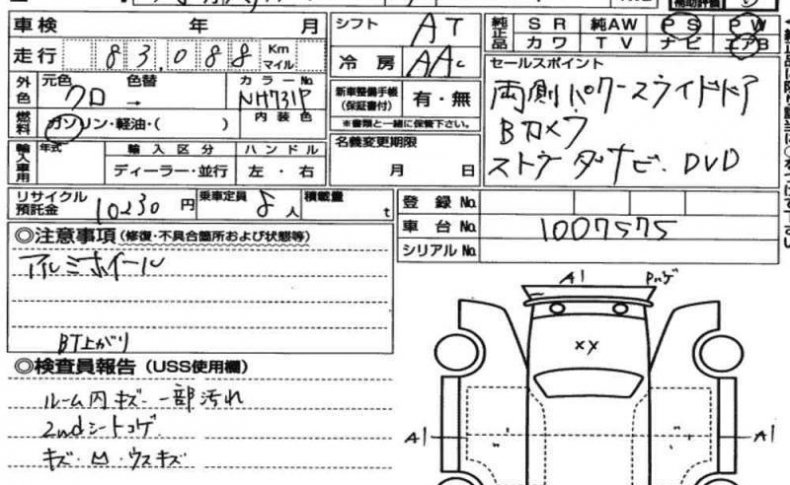 車検 年 月
走行 83,088 Km マイル
外色 元色 色替 カラーNo.
クロ → NH731P
燃料 ガソリン・軽油・( ) 内装色
輸入車用 年式 輸入区分 ハンドル
ディーラー・並行 左・右
リサイクル預託金 10230円 乗車定員 8人 積載量 t
シフト AT
冷房 AAC
新車整備手帳(保証書付) 有・無
※書類と一緒に保管下さい。
名義変更期限
月 日
純正品 SR 純AW PS PW
カワ TV ナビ エアB
セールスポイント
両側パワースライドドア
Bカメラ
ストラダナビ. DVD
登録No.
車台No. 1007575
シリアルNo.
◎注意事項(修復・不具合箇所および状態等)
アルミホイール
BT上がり
◎検査員報告(USS使用欄)
ルーム内キズ・一部汚れ
2ndシートコゲ.
キズ・凹・ウスキズ
A1
XY
A1
A1